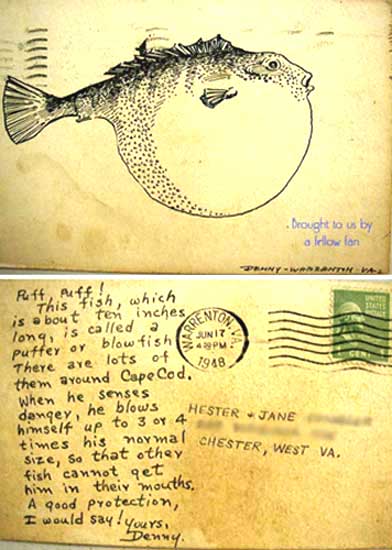 Brought to us by
a fellow fan
DENNY - WARRENTON - VA.
Puff, Puff!
This fish, which
is about ten inches
long, is called a
puffer or blowfish
There are lots of
them around Cape Cod.
When he senses
danger, he blows
himself up to 3 or 4
times his normal
size, so that other
fish cannot get
him in their mouths.
A good protection,
I would say! Yours,
Denny.
WARRENTON, VA.
JUN 17
4 PM
1948
UNITED
STATES
CENT
HESTER + JANE
CHESTER, WEST VA.